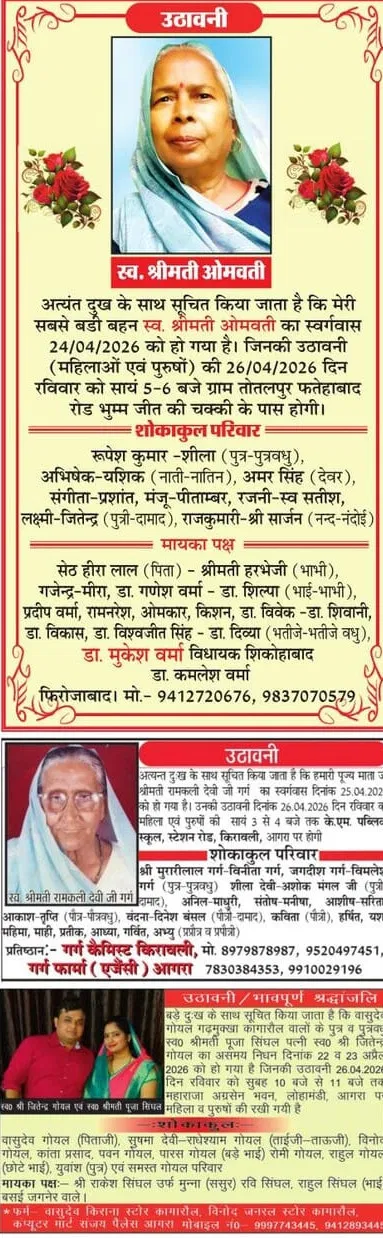 उठावनी
स्व. श्रीमती ओमवती
अत्यंत दुख के साथ सूचित किया जाता है कि मेरी
सबसे बडी बहन स्व. श्रीमती ओमवती का स्वर्गवास
24/04/2026 को हो गया है। जिनकी उठावनी
(महिलाओं एवं पुरुषों) की 26/04/2026 दिन
रविवार को सायं 5-6 बजे ग्राम तोतलपुर फतेहाबाद
रोड भुम्म जीत की चक्की के पास होगी।
शोकाकुल परिवार
रूपेश कुमार -शीला (पुत्र-पुत्रवधु),
अभिषेक-यशिक (नाती-नातिन), अमर सिंह (देवर),
संगीता-प्रशांत, मंजू-पीताम्बर, रजनी-स्व सतीश,
लक्ष्मी-जितेन्द्र (पुत्री-दामाद), राजकुमारी-श्री सार्जन (नन्द-नंदोई)
मायका पक्ष
सेठ हीरा लाल (पिता) - श्रीमती हरभेजी (भाभी),
गजेन्द्र-मीरा, डा. गणेश वर्मा - डा. शिल्पा (भाई-भाभी),
प्रदीप वर्मा, रामनरेश, ओमकार, किशन, डा. विवेक -डा. शिवानी,
डा. विकास, डा. विश्वजीत सिंह - डा. दिव्या (भतीजे-भतीजे वधु),
डा. मुकेश वर्मा विधायक शिकोहाबाद
डा. कमलेश वर्मा
फिरोजाबाद। मो.- 9412720676, 9837070579
उठावनी
अत्यन्त दु:ख के साथ सूचित किया जाता है कि हमारी पूज्य माता ज
श्रीमती रामकली देवी जी गर्ग का स्वर्गवास दिनांक 25.04.202
को हो गया है। उनकी उठावनी दिनांक 26.04.2026 दिन रविवार व
महिला एवं पुरुषों की सायं 3 से 4 बजे तक के.एम. पब्लिव
स्कूल, स्टेशन रोड, किरावली, आगरा पर होगी
स्व. श्रीमती रामकली देवी जी गर्ग
शोकाकुल परिवार
श्री मुरारीलाल गर्ग-विनीता गर्ग, जगदीश गर्ग-विमले
गर्ग (पुत्र-पुत्रवधु) शीला देवी-अशोक मंगल जी (पुत्री
दामाद), अनिल-माधुरी, संतोष-मनीषा, आशीष-सरिता
आकाश-तृप्ति (पौत्र-पौत्रवधु), वंदना-दिनेश बंसल (पौत्री-दामाद), कविता (पौत्री), हर्षित, यश
महिमा, माही, प्रतीक, आध्या, गर्वित, अभ्यु (प्रपौत्र व प्रपौत्री)
प्रतिष्ठान:- गर्ग कैमिस्ट किरावली, मो. 8979878987, 9520497451,
गर्ग फार्मा (एजेंसी) आगरा 7830384353, 9910029196
उठावनी/भावपूर्ण श्रद्धांजलि
बड़े दु:ख के साथ सूचित किया जाता है कि वासुदे
गोयल गढ़मुक्खा कागारौल वालों के पुत्र व पुत्रवधु
स्व0 श्रीमती पूजा सिंघल पत्नी स्व0 श्री जितेन्द्र
गोयल का असमय निधन दिनांक 22 व 23 अप्रैल
2026 को हो गया है जिनकी उठावनी 26.04.2026
दिन रविवार को सुबह 10 बजे से 11 बजे तक
महाराजा अग्रसेन भवन, लोहामंडी, आगरा पर
महिला व पुरुषों की रखी गयी है
स्व0 श्री जितेन्द्र गोयल एवं स्व0 श्रीमती पूजा सिंघल
-:शोकाकुल:-
वासुदेव गोयल (पिताजी), सुषमा देवी-राधेश्याम गोयल (ताईजी-ताऊजी), विनोद
गोयल, कांता प्रसाद, पवन गोयल, पारस गोयल (बड़े भाई) रोमी गोयल, राहुल गोयल
(छोटे भाई), युवांश (पुत्र) एवं समस्त गोयल परिवार
मायका पक्ष:- श्री राकेश सिंघल उर्फ मुन्ना (ससुर) रवि सिंघल, राहुल सिंघल (भाई
बसई जगनेर वाले।
* फर्म- वासुदेव किराना स्टोर कागारौल, विनोद जनरल स्टोर कागारौल,
कंप्यूटर मार्ट संजय पैलेस आगरा मोबाइल नं0- 9997743445, 9412893445